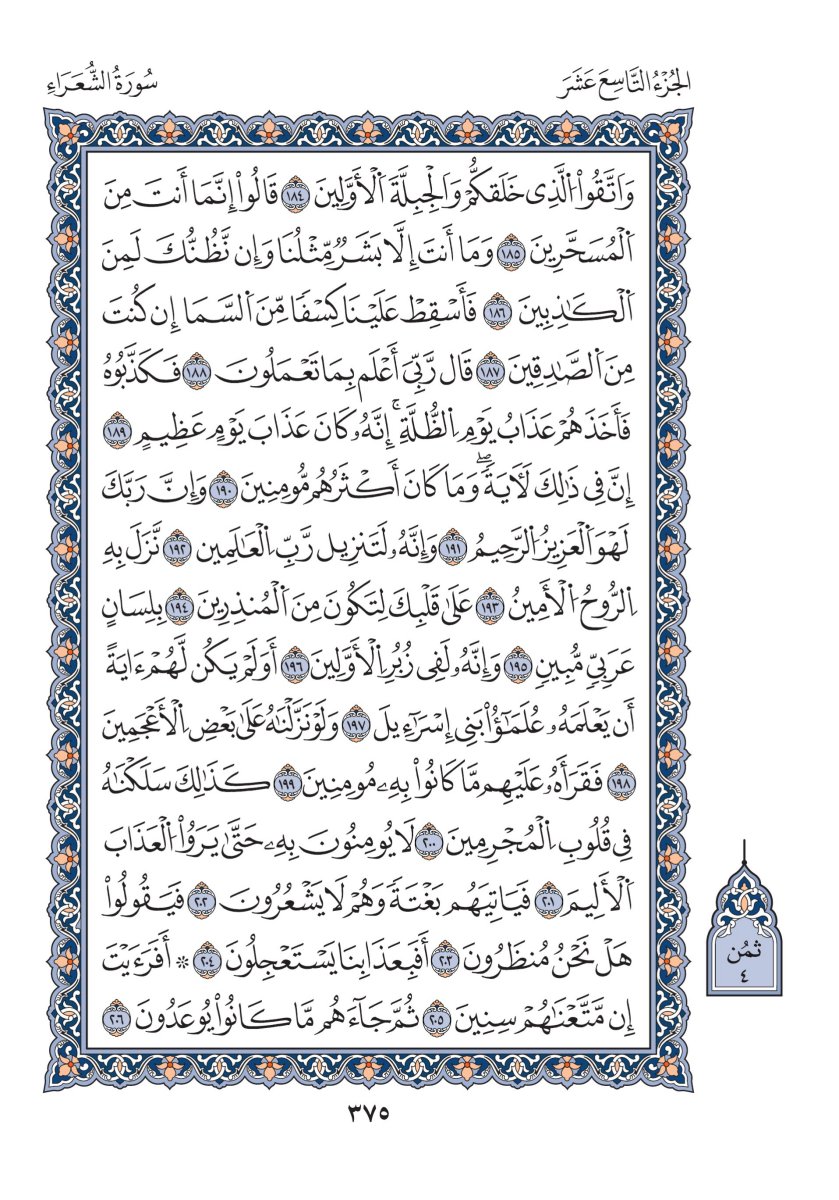 الجُزْءُ التَّاسِعَ عَشَرَ
سُورَةُ الشُّعَرَاءِ
وَاتَّقُواْ الَّذِى خَلَقكُّمْ وَالْجِبِلَّةَ اَلْأَوَّلِينَ ١٨٤ قَالُواْ إِنَّمَا أَنتَ مِنَ
اَلْمُسَحَّرِينَ ١٨٥ وَمَا أَنتَ إِلَّا بَشَرٌ مِّثْلُنَا وَإِن نَّظُنُّكَ لَمِنَ
اَلْكَٰذِبِينَ ١٨٦ فَأَسْقِطْ عَلَيْنَا كِسْفًا مِّنَ اَلسَّمَا إِن كُنتَ
مِنَ اَلصَّٰدِقِينَ ١٨٧ قَال رَّبِّىَ أَعْلَم بِمَا تَعْمَلُونَ ١٨٨ فَكَذَّبُوهُ
فَأَخَذَهُمْ عَذَابُ يَوْمِ اِلظُّلَّةِ ۚ إِنَّهُۥ كَانَ عَذَابَ يَوْمٍ عَظِيمٍ ١٨٩
إِنَّ فِى ذَٰلِكَ لَأٓيَةً ۖ وَمَا كَانَ أَكْثَرُهُم مُّومِنِينَ ١٩٠ وَإِنَّ رَبَّكَ
لَهْوَ اَلْعَزِيزُ اُلرَّحِيمُ ١٩١ وَإِنَّهُۥ لَتَنزِيل رَّبِّ اِلْعَٰلَمِين ١٩٢ نَّزَلَ بِهِ
اِلرُّوحُ اُلْأَمِينُ ١٩٣ عَلَىٰ قَلْبِكَ لِتَكُونَ مِنَ اَلْمُنذِرِينَ ١٩٤ بِلِسَانٍ
عَرَبِىٍّ مُّبِينٍ ١٩٥ وَإِنَّهُۥ لَفِى زُبُرِ اِلْأَوَّلِينَ ١٩٦ أَوَلَمْ يَكُن لَّهُمْ ءَايَةً
أَن يَعْلَمَهُۥ عُلَمَٰٓؤُاْ بَنِى إِسْرَٰٓءِيلَ ١٩٧ وَلَوْ نَزَّلْنَٰهُ عَلَىٰ بَعْضِ اِلْأَعْجَمِينَ
١٩٨ فَقَرَأَهُۥ عَلَيْهِم مَّا كَانُواْ بِهِۦ مُومِنِينَ ١٩٩ كَذَٰلِكَ سَلَكْنَٰهُ
فِى قُلُوبِ اِلْمُجْرِمِينَ ٢٠٠ لَا يُومِنُونَ بِهِۦ حَتَّىٰ يَرَوُاْ اُلْعَذَابَ
اَلْأَلِيمَ ٢٠١ فَيَاتِيَهُم بَغْتَةً وَهُمْ لَا يَشْعُرُونَ ٢٠٢ فَيَقُولُواْ
هَلْ نَحْنُ مُنظَرُونَ ٢٠٣ أَفَبِعَذَابِنَا يَسْتَعْجِلُونَ ٢٠٤ * أَفَرَءَيْتَ
إِن مَّتَّعْنَٰهُمْ سِنِينَ ٢٠٥ ثُمَّ جَآءَهُم مَّا كَانُواْ يُوعَدُونَ ٢٠٦
ثمُن
٤
٣٧٥